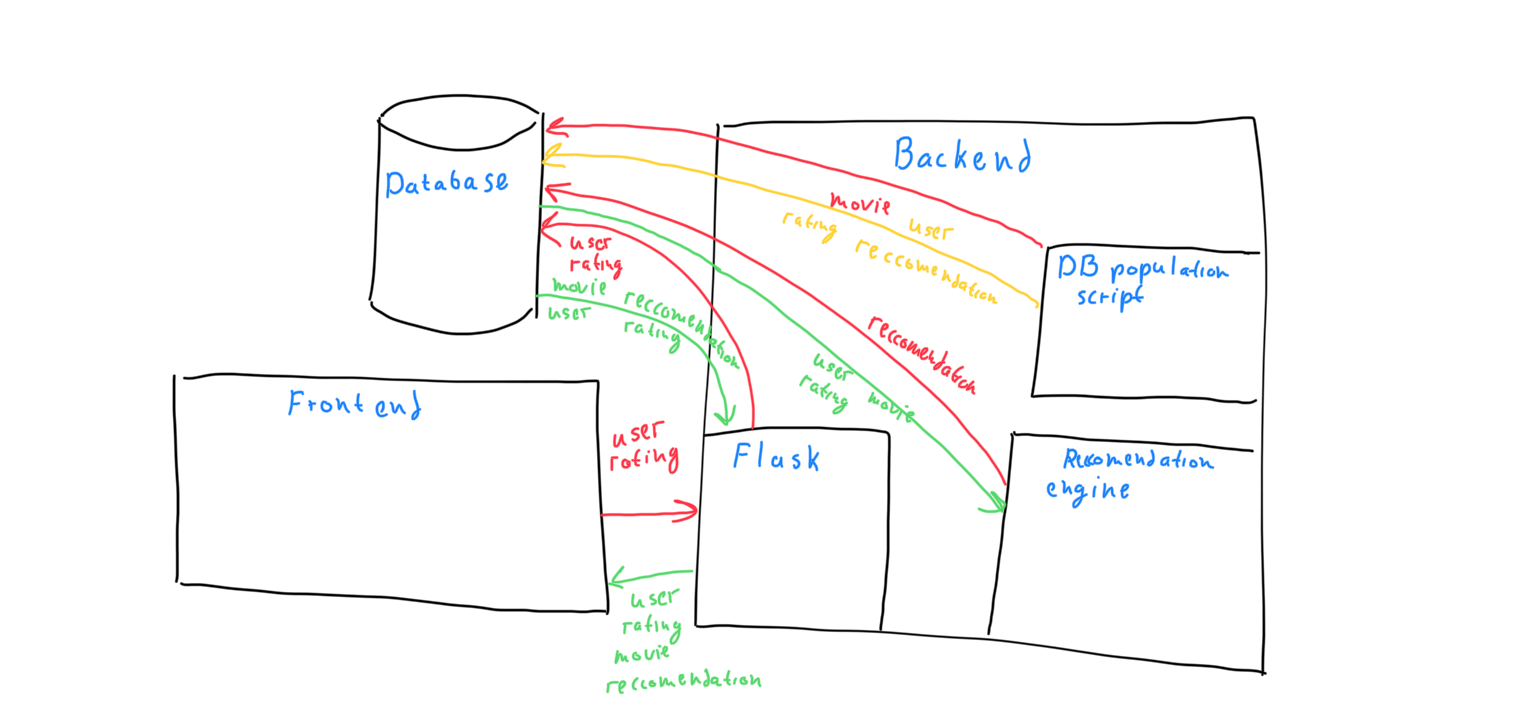 Backend
Database
movie user
rating reccomendation
user
rating
DB population
script
movie reccomendation
user rating
reccomendation
user movie
rating
Frontend
user
rating
Flask
Reccomendation
engine
user
rating
movie
reccomendation